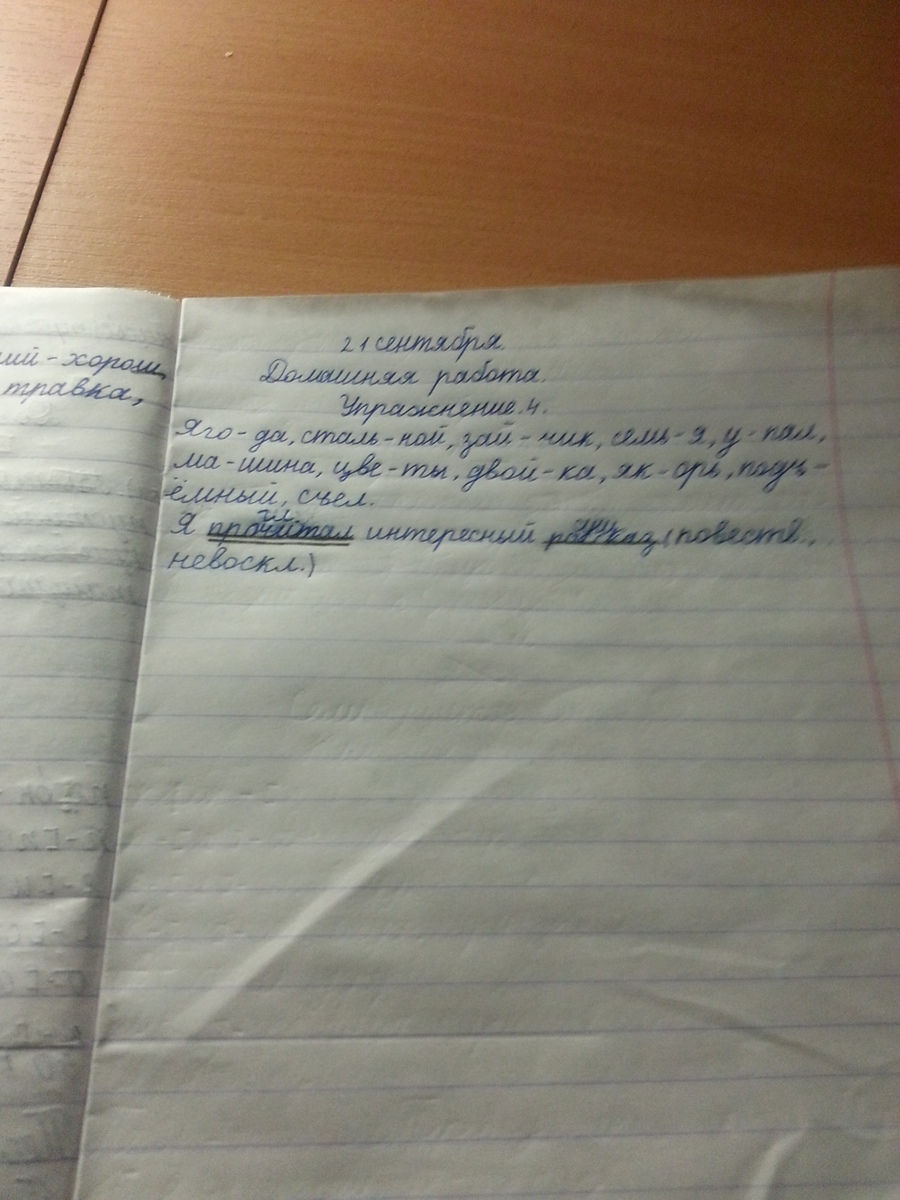 ший - хорош
травка,
21 сентября.
Домашняя работа.
Упражнение.4.
Яго-да, сталь-ной, зай-чик, семь-я, у-пал,
ма-шина, цве-ты, двой-ка, як-орь, подъ-
ёмный, съел.
Я прочитал интересный рассказ (повеств.,
невоскл.)